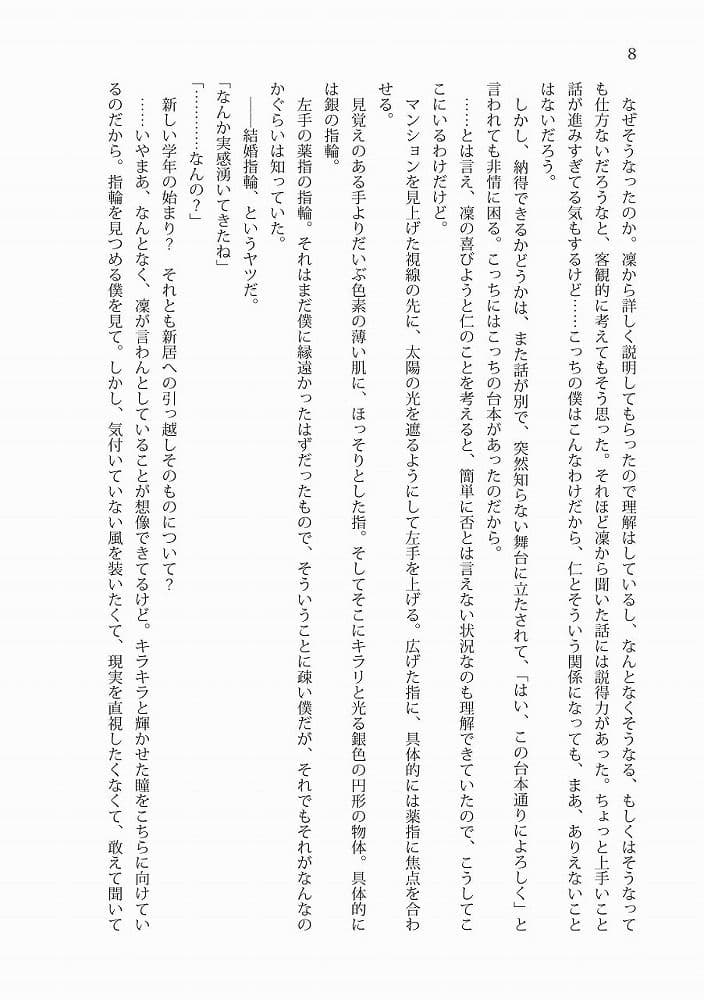 8
なぜそうなったのか。凜から詳しく説明してもらったので理解はしているし、なんとなくそうなる、もしくはそうなって
も仕方ないだろうなと、客観的に考えてもそう思った。それほど凜から聞いた話には説得力があった。ちょっと上手いこと
話が進みすぎてる気もするけど……こっちの僕はこんなわけだから、仁とそういう関係になっても、まあ、ありえないこと
はないだろう。
しかし、納得できるかどうかは、また話が別で、突然知らない舞台に立たされて、「はい、この台本通りによろしく」と
言われても非情に困る。こっちにはこっちの台本があったのだから。
……とは言え、凜の喜びようと仁のことを考えると、簡単に否とは言えない状況なのも理解できていたので、こうしてこ
こにいるわけだけど。
マンションを見上げた視線の先に、太陽の光を遮るようにして左手を上げる。広げた指に、具体的には薬指に焦点を合わ
せる。
見覚えのある手よりだいぶ色素の薄い肌に、ほっそりとした指。そしてそこにキラリと光る銀色の円形の物体。具体的に
は銀の指輪。
左手の薬指の指輪。それはまだ僕に縁遠かったはずだったもので、そういうことに疎い僕だが、それでもそれがなんなの
かぐらいは知っていた。
――結婚指輪、というヤツだ。
「なんか実感湧いてきたね」
「…………なんの？」
新しい学年の始まり？　それとも新居への引っ越しそのものについて？
……いやまあ、なんとなく、凜が言わんとしていることが想像できてるけど。キラキラと輝かせた瞳をこちらに向けてい
るのだから。指輪を見つめる僕を見て。しかし、気付いていない風を装いたくて、現実を直視したくなくて、敢えて聞いて